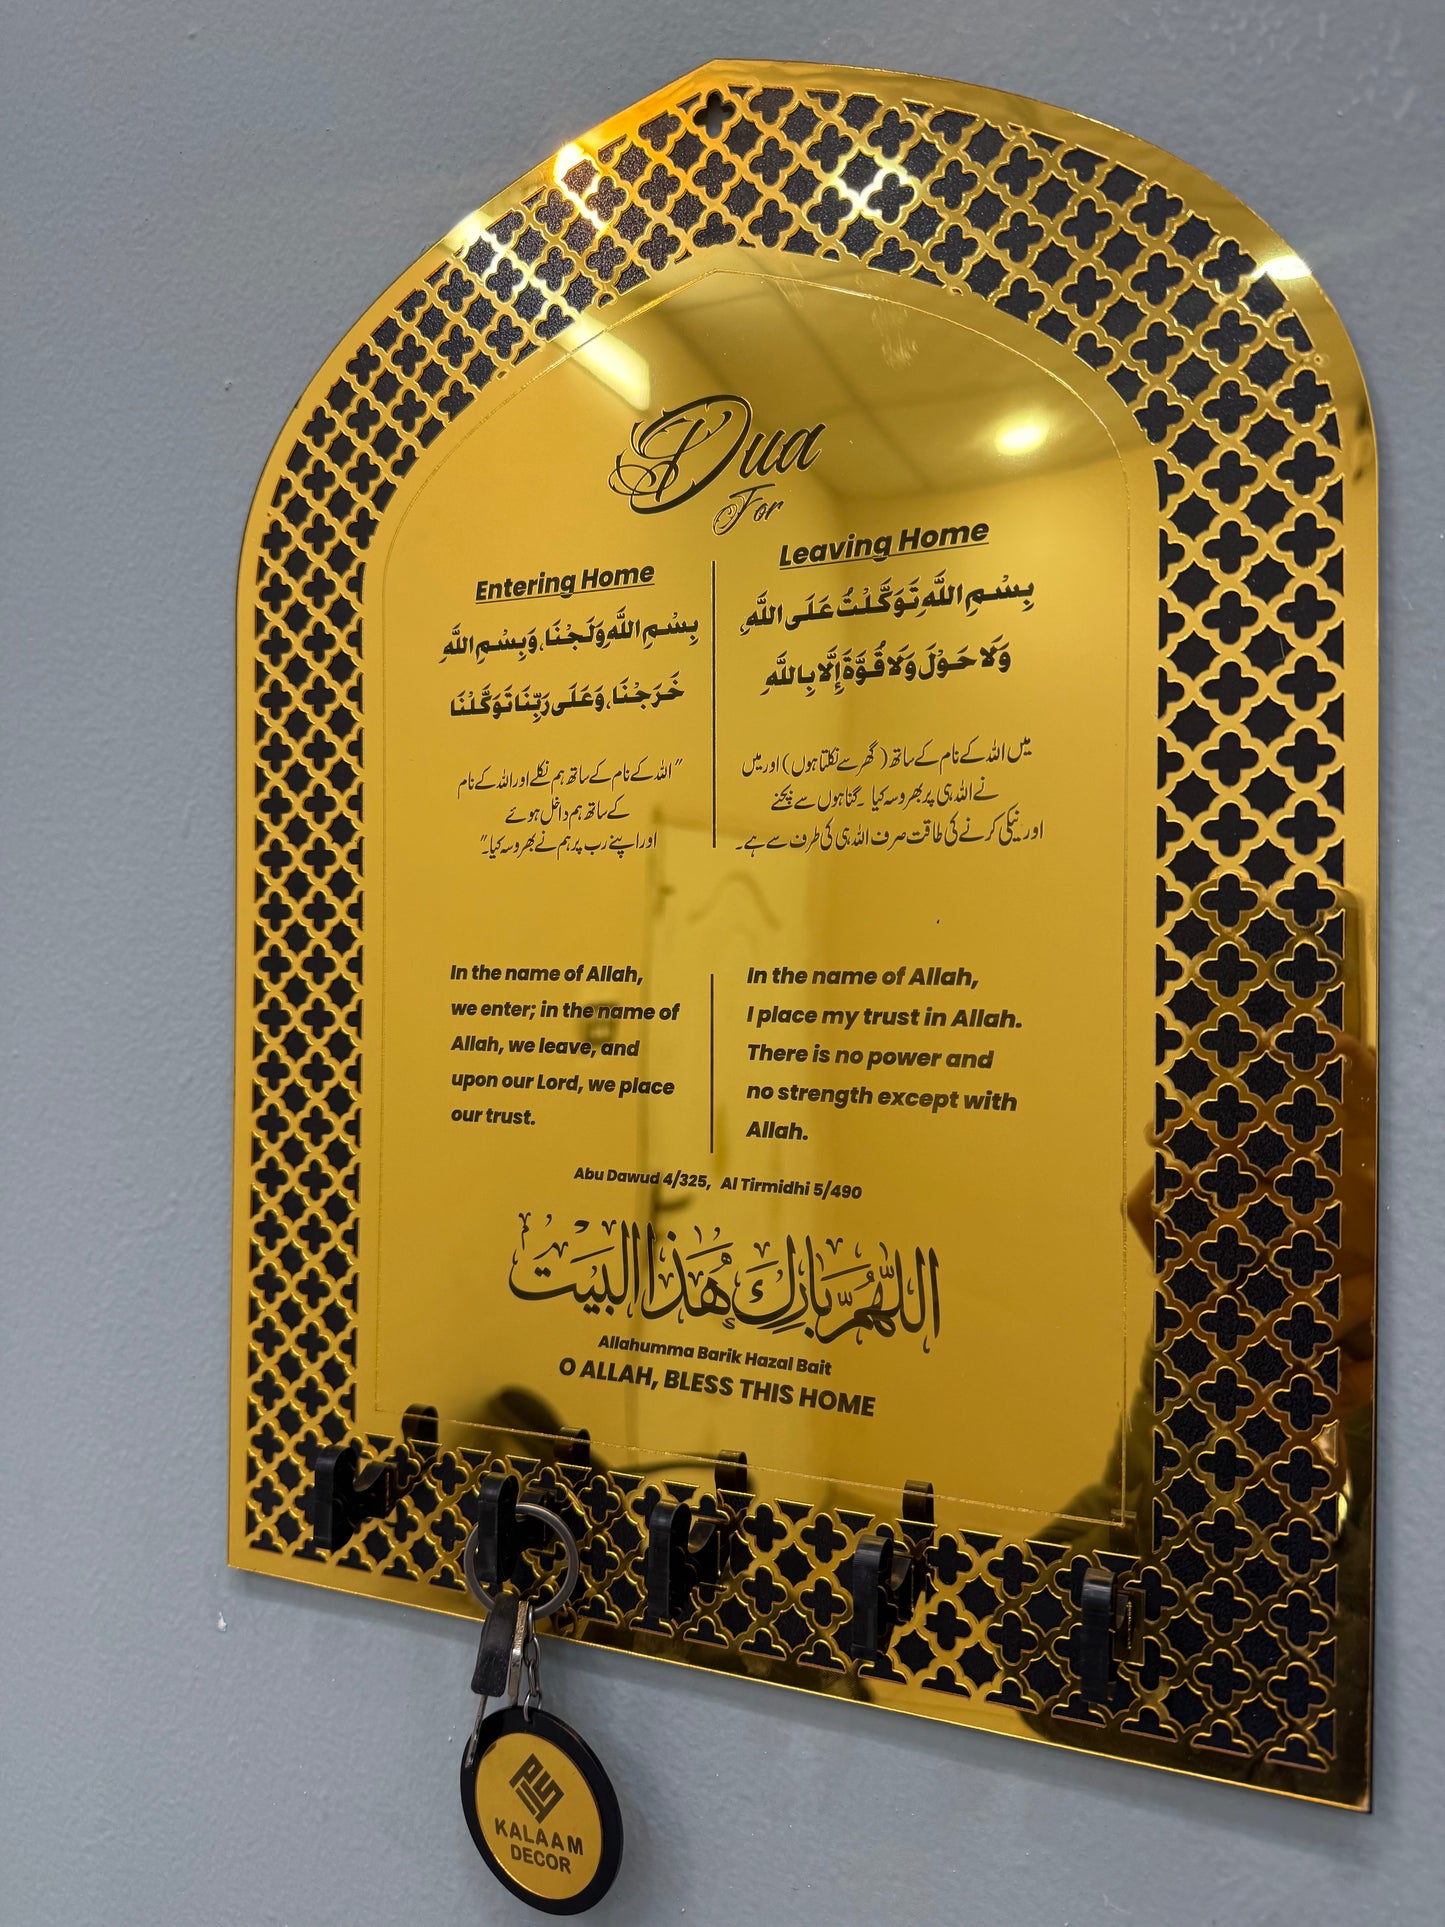 Dua
For
Entering Home
بِسْمِ اللَّهِ وَلَجْنَا، وَبِسْمِ اللَّهِ
خَرَجْنَا، وَعَلَى رَبِّنَا تَوَكَّلْنَا
"اللہ کے نام کے ساتھ ہم نکلے اور اللہ کے نام
کے ساتھ ہم داخل ہوئے
اور اپنے رب پر ہم نے بھروسہ کیا۔"
Leaving Home
بِسْمِ اللَّهِ تَوَكَّلْتُ عَلَى اللَّهِ،
وَلَا حَوْلَ وَلَا قُوَّةَ إِلَّا بِاللَّهِ
میں اللہ کے نام کے ساتھ (گھر سے نکلتا ہوں) اور میں
نے اللہ ہی پر بھروسہ کیا ۔ گناہوں سے بچنے
اور نیکی کرنے کی طاقت صرف اللہ ہی کی طرف سے ہے۔
In the name of Allah,
we enter; in the name of
Allah, we leave, and
upon our Lord, we place
our trust.
In the name of Allah,
I place my trust in Allah.
There is no power and
no strength except with
Allah.
Abu Dawud 4/325, Al Tirmidhi 5/490
اللَّهُمَّ بَارِكْ هٰذَا البَيْت
Allahumma Barik Hazal Bait
O ALLAH, BLESS THIS HOME
KALAAM
DECOR